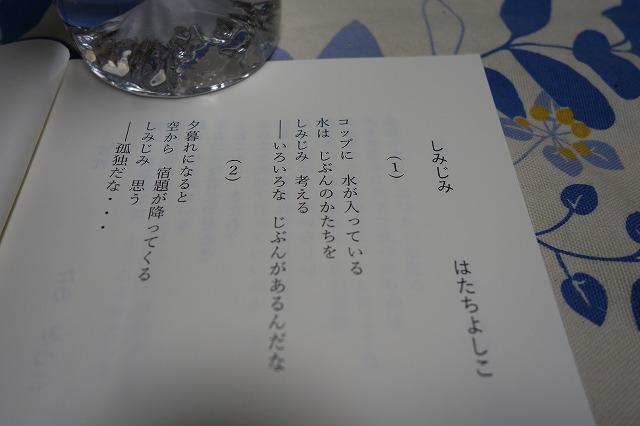 しみじみ
はたちよしこ
(1)
コップに 水が入っている
水は じぶんのかたちを
しみじみ 考える
──いろいろな じぶんがあるんだな
(2)
夕暮れになると
空から 宿題が降ってくる
しみじみ 思う
──孤独だな・・・